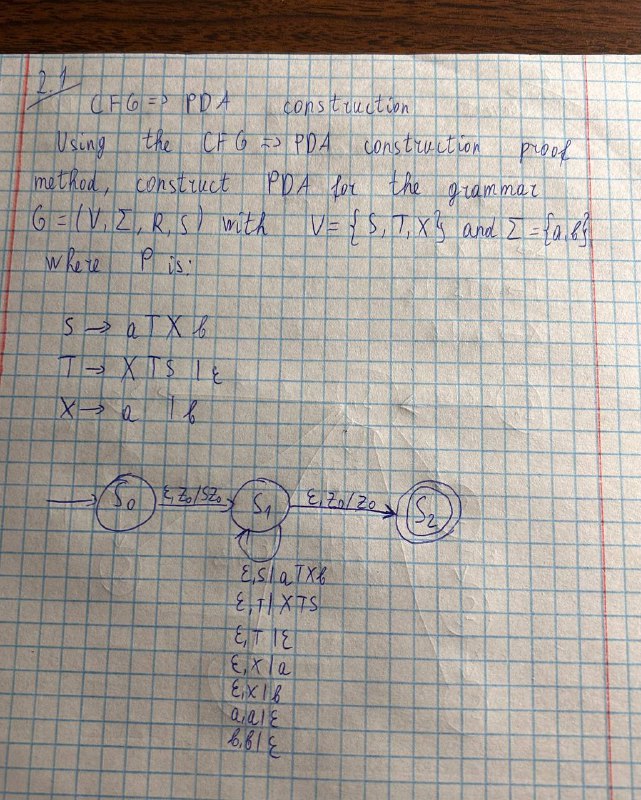 2.1
CFG => PDA construction
Using the CFG => PDA construction proof
method, construct PDA for the grammar
G = (V, Σ, R, S) with V = { S, T, X } and Σ = {a, b}
where P is:
S → a T X b
T → X T S | ε
X → a | b
S₀ ε, Z₀/SZ₀ S₁ ε, Z₀/Z₀ S₂
ε, S | a T X b
ε, T | X T S
ε, T | ε
ε, X | a
ε, X | b
a, a | ε
b, b | ε